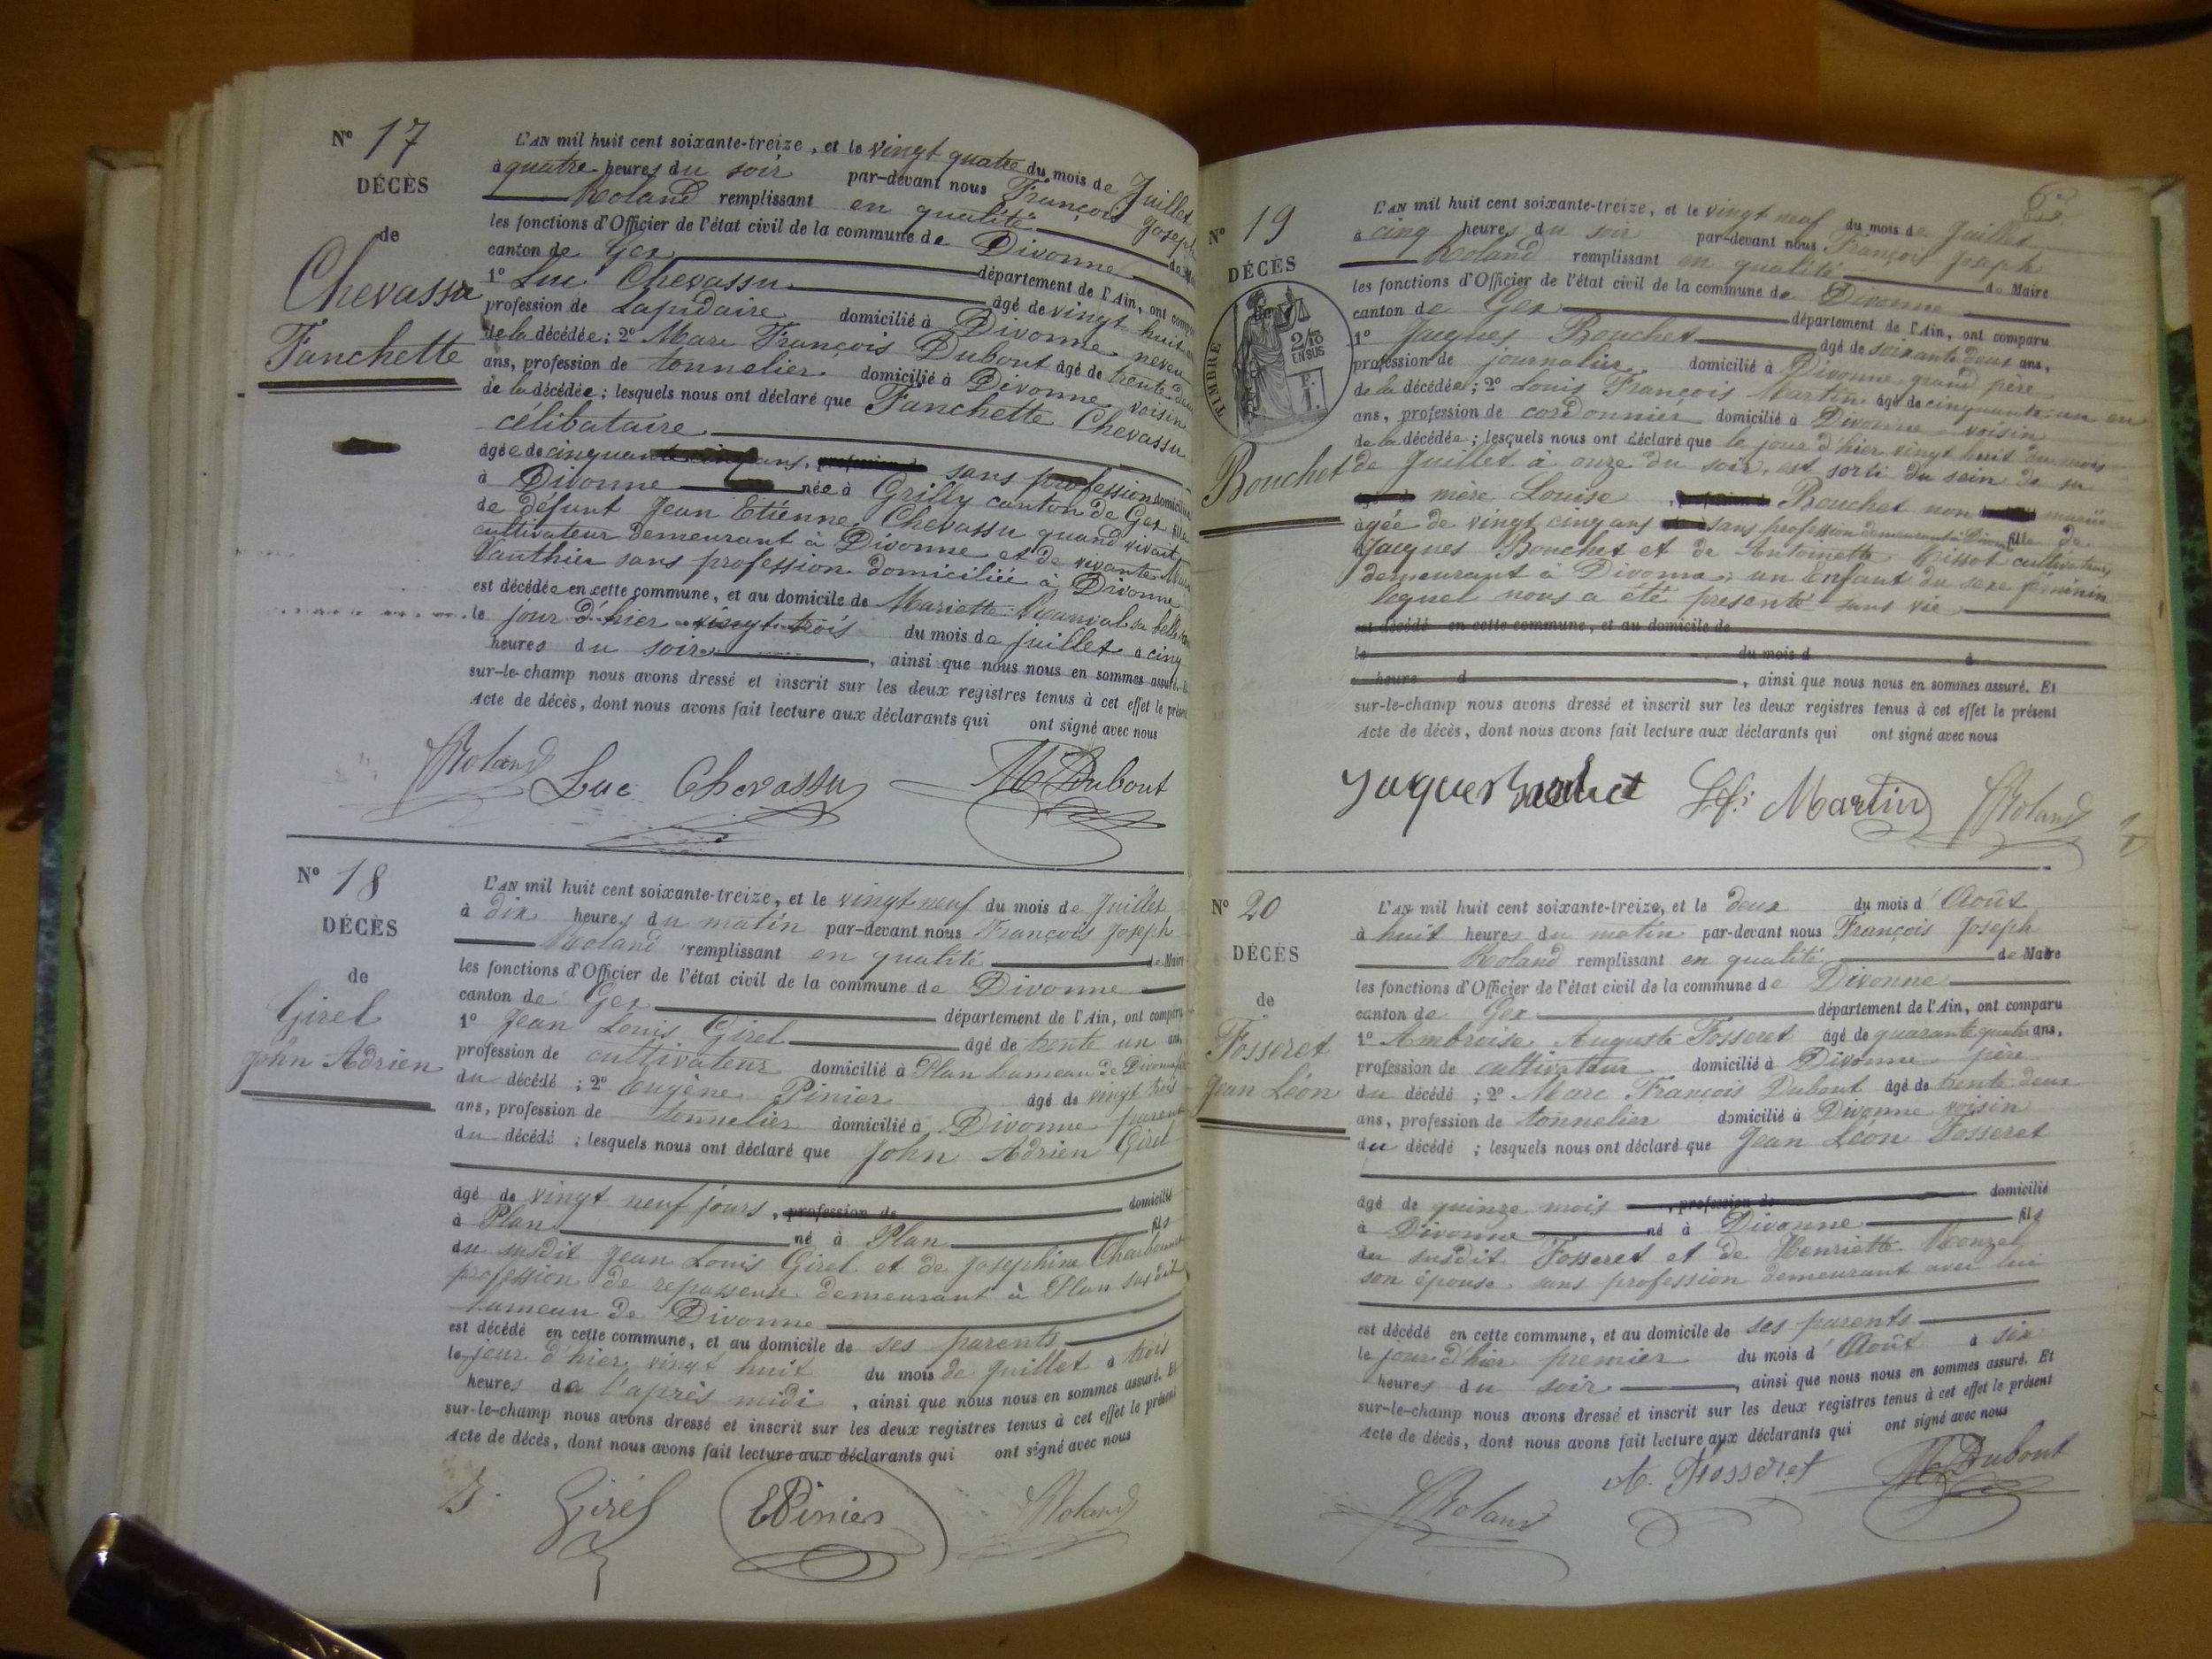 N° 17
DÉCÈS
de
Chevassu
Fanchette
L'AN mil huit cent soixante-treize, et le vingt quatre du mois de Juillet
à quatre heures du soir par-devant nous François Joseph
Roland remplissant en qualité de
les fonctions d'Officier de l'état civil de la commune de Divonne
canton de Gex département de l'Ain, ont
1° Luc Chevassu âgé de vingt huit
profession de Lapidaire domicilié à Divonne neveu
de la décédée; 2° Marc François Dubout âgé de trente deux
ans, profession de tonnelier domicilié à Divonne voisin
de la décédée; lesquels nous ont déclaré que Fanchette Chevassu
célibataire
âgée de cinquante cinq ans, sans profession
à Divonne née à Grilly canton de Gex fille
de défunt Jean Etienne Chevassu quand vivait
cultivateur demeurant à Divonne et de vivante
Vauthier sans profession domiciliée à Divonne
est décédée en cette commune, et au domicile de Mariette sa belle
le jour d'hier vingt trois du mois de Juillet à cinq
heures du soir, ainsi que nous nous en sommes assuré.
sur-le-champ nous avons dressé et inscrit sur les deux registres tenus à cet effet le présent
Acte de décès, dont nous avons fait lecture aux déclarants qui ont signé avec nous
Roland Luc Chevassu M Dubout
N° 18
DÉCÈS
de
Girel
John Adrien
L'AN mil huit cent soixante-treize, et le vingt neuf du mois de Juillet
à dix heures du matin par-devant nous François Joseph
Roland remplissant en qualité de Maire
les fonctions d'Officier de l'état civil de la commune de Divonne
canton de Gex département de l'Ain, ont comparu
1° Jean Louis Girel âgé de trente un ans,
profession de cultivateur domicilié à Plan hameau de Divonne
du décédé; 2° Eugène Pinier âgé de vingt trois
ans, profession de tonnelier domicilié à Divonne parent
du décédé; lesquels nous ont déclaré que John Adrien Girel
âgé de vingt neuf jours, profession de domicilié
à Plan né à Plan fils
du susdit Jean Louis Girel et de Josephine
profession de repasseuse demeurant à Plan susdit
hameau de Divonne
est décédé en cette commune, et au domicile de ses parents
le jour d'hier vingt huit du mois de Juillet à trois
heures de l'après midi, ainsi que nous nous en sommes assuré. Et
sur-le-champ nous avons dressé et inscrit sur les deux registres tenus à cet effet le présent
Acte de décès, dont nous avons fait lecture aux déclarants qui ont signé avec nous
J. Girel E Pinier Roland
N° 19
DÉCÈS
de
TIMBRE
2/10
EN SUS
F.
1.
Bouchet
L'AN mil huit cent soixante-treize, et le vingt neuf du mois de Juillet
à cinq heures du soir par-devant nous François Joseph
Roland remplissant en qualité de Maire
les fonctions d'Officier de l'état civil de la commune de Divonne
canton de Gex département de l'Ain, ont comparu
1° Jacques Bouchet âgé de soixante deux ans,
profession de journalier domicilié à Divonne grand père
de la décédée; 2° Louis François Martin âgé de cinquante un
ans, profession de cordonnier domicilié à Divonne voisin
de la décédée; lesquels nous ont déclaré que le jour d'hier vingt huit du mois
de Juillet à onze du soir, est sorti du sein de sa
mère Louise Bouchet non mariée
âgée de vingt cinq ans sans profession demeurant à Divonne fille de
Jacques Bouchet et de Antoinette Pissot cultivateurs
demeurant à Divonne, un Enfant du sexe féminin
lequel nous a été présenté sans vie
est décédé en cette commune, et au domicile de
le du mois d à
heure d, ainsi que nous nous en sommes assuré. Et
sur-le-champ nous avons dressé et inscrit sur les deux registres tenus à cet effet le présent
Acte de décès, dont nous avons fait lecture aux déclarants qui ont signé avec nous
Martin Roland
N° 20
DÉCÈS
de
Fosseret
Jean Léon
L'AN mil huit cent soixante-treize, et le deux du mois d'Août
à huit heures du matin par-devant nous François Joseph
Roland remplissant en qualité de Maire
les fonctions d'Officier de l'état civil de la commune de Divonne
canton de Gex département de l'Ain, ont comparu
1° Ambroise Auguste Fosseret âgé de quarante quatre ans,
profession de cultivateur domicilié à Divonne père
du décédé; 2° Marc François Dubout âgé de trente deux
ans, profession de tonnelier domicilié à Divonne voisin
du décédé; lesquels nous ont déclaré que Jean Léon Fosseret
âgé de quinze mois, profession de domicilié
à Divonne né à Divonne fils
du susdit Fosseret et de Henriette Monzel
son épouse sans profession demeurant avec lui
est décédé en cette commune, et au domicile de ses parents
le jour d'hier premier du mois d'Août à six
heures du soir, ainsi que nous nous en sommes assuré. Et
sur-le-champ nous avons dressé et inscrit sur les deux registres tenus à cet effet le présent
Acte de décès, dont nous avons fait lecture aux déclarants qui ont signé avec nous
Roland A. Fosseret M Dubout